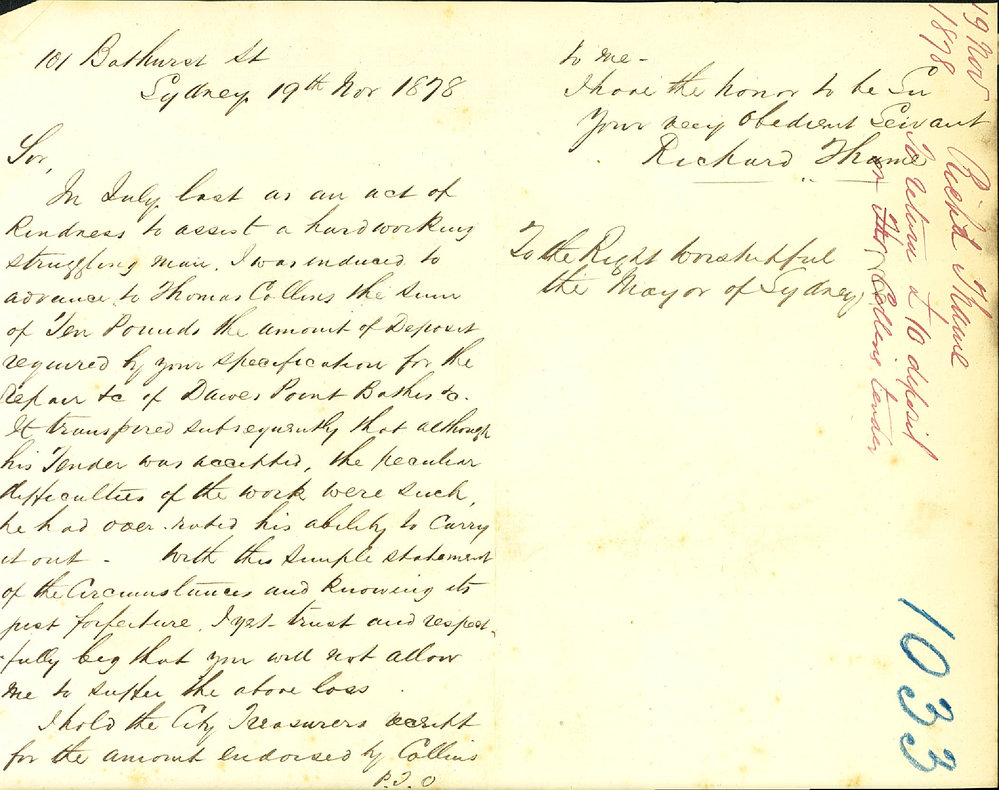 101 Bathurst St
Sydney 19th Nov 1878
Sir,
In July last as an act of
Kindness to assist a hardworking
struggling man, I was induced to
advance to Thomas Collins the sum
of Ten Pounds the amount of Deposit
required by your specification for the
repair &c of Dawes Point Baths &c.
It transpired subsequently that although
his Tender was accepted, the peculiar
difficulties of the work were such,
he had over-rated his ability to carry
it out - With this simple statement
of the Circumstances and knowing its
just forfeiture, I yet trust and respect-
-fully beg that you will not allow
me to suffer the above loss.
I hold the City Treasurers receipt
for the amount endorsed by Collins
P.T.O
to me -
I have the honor to be Sir
Your very Obedient Servant
Richard Thame
To the Right Worshipful
the Mayor of Sydney
19 Nov
1878
Richd Thame
To return £10 deposit
on Thos Collins tender
1033